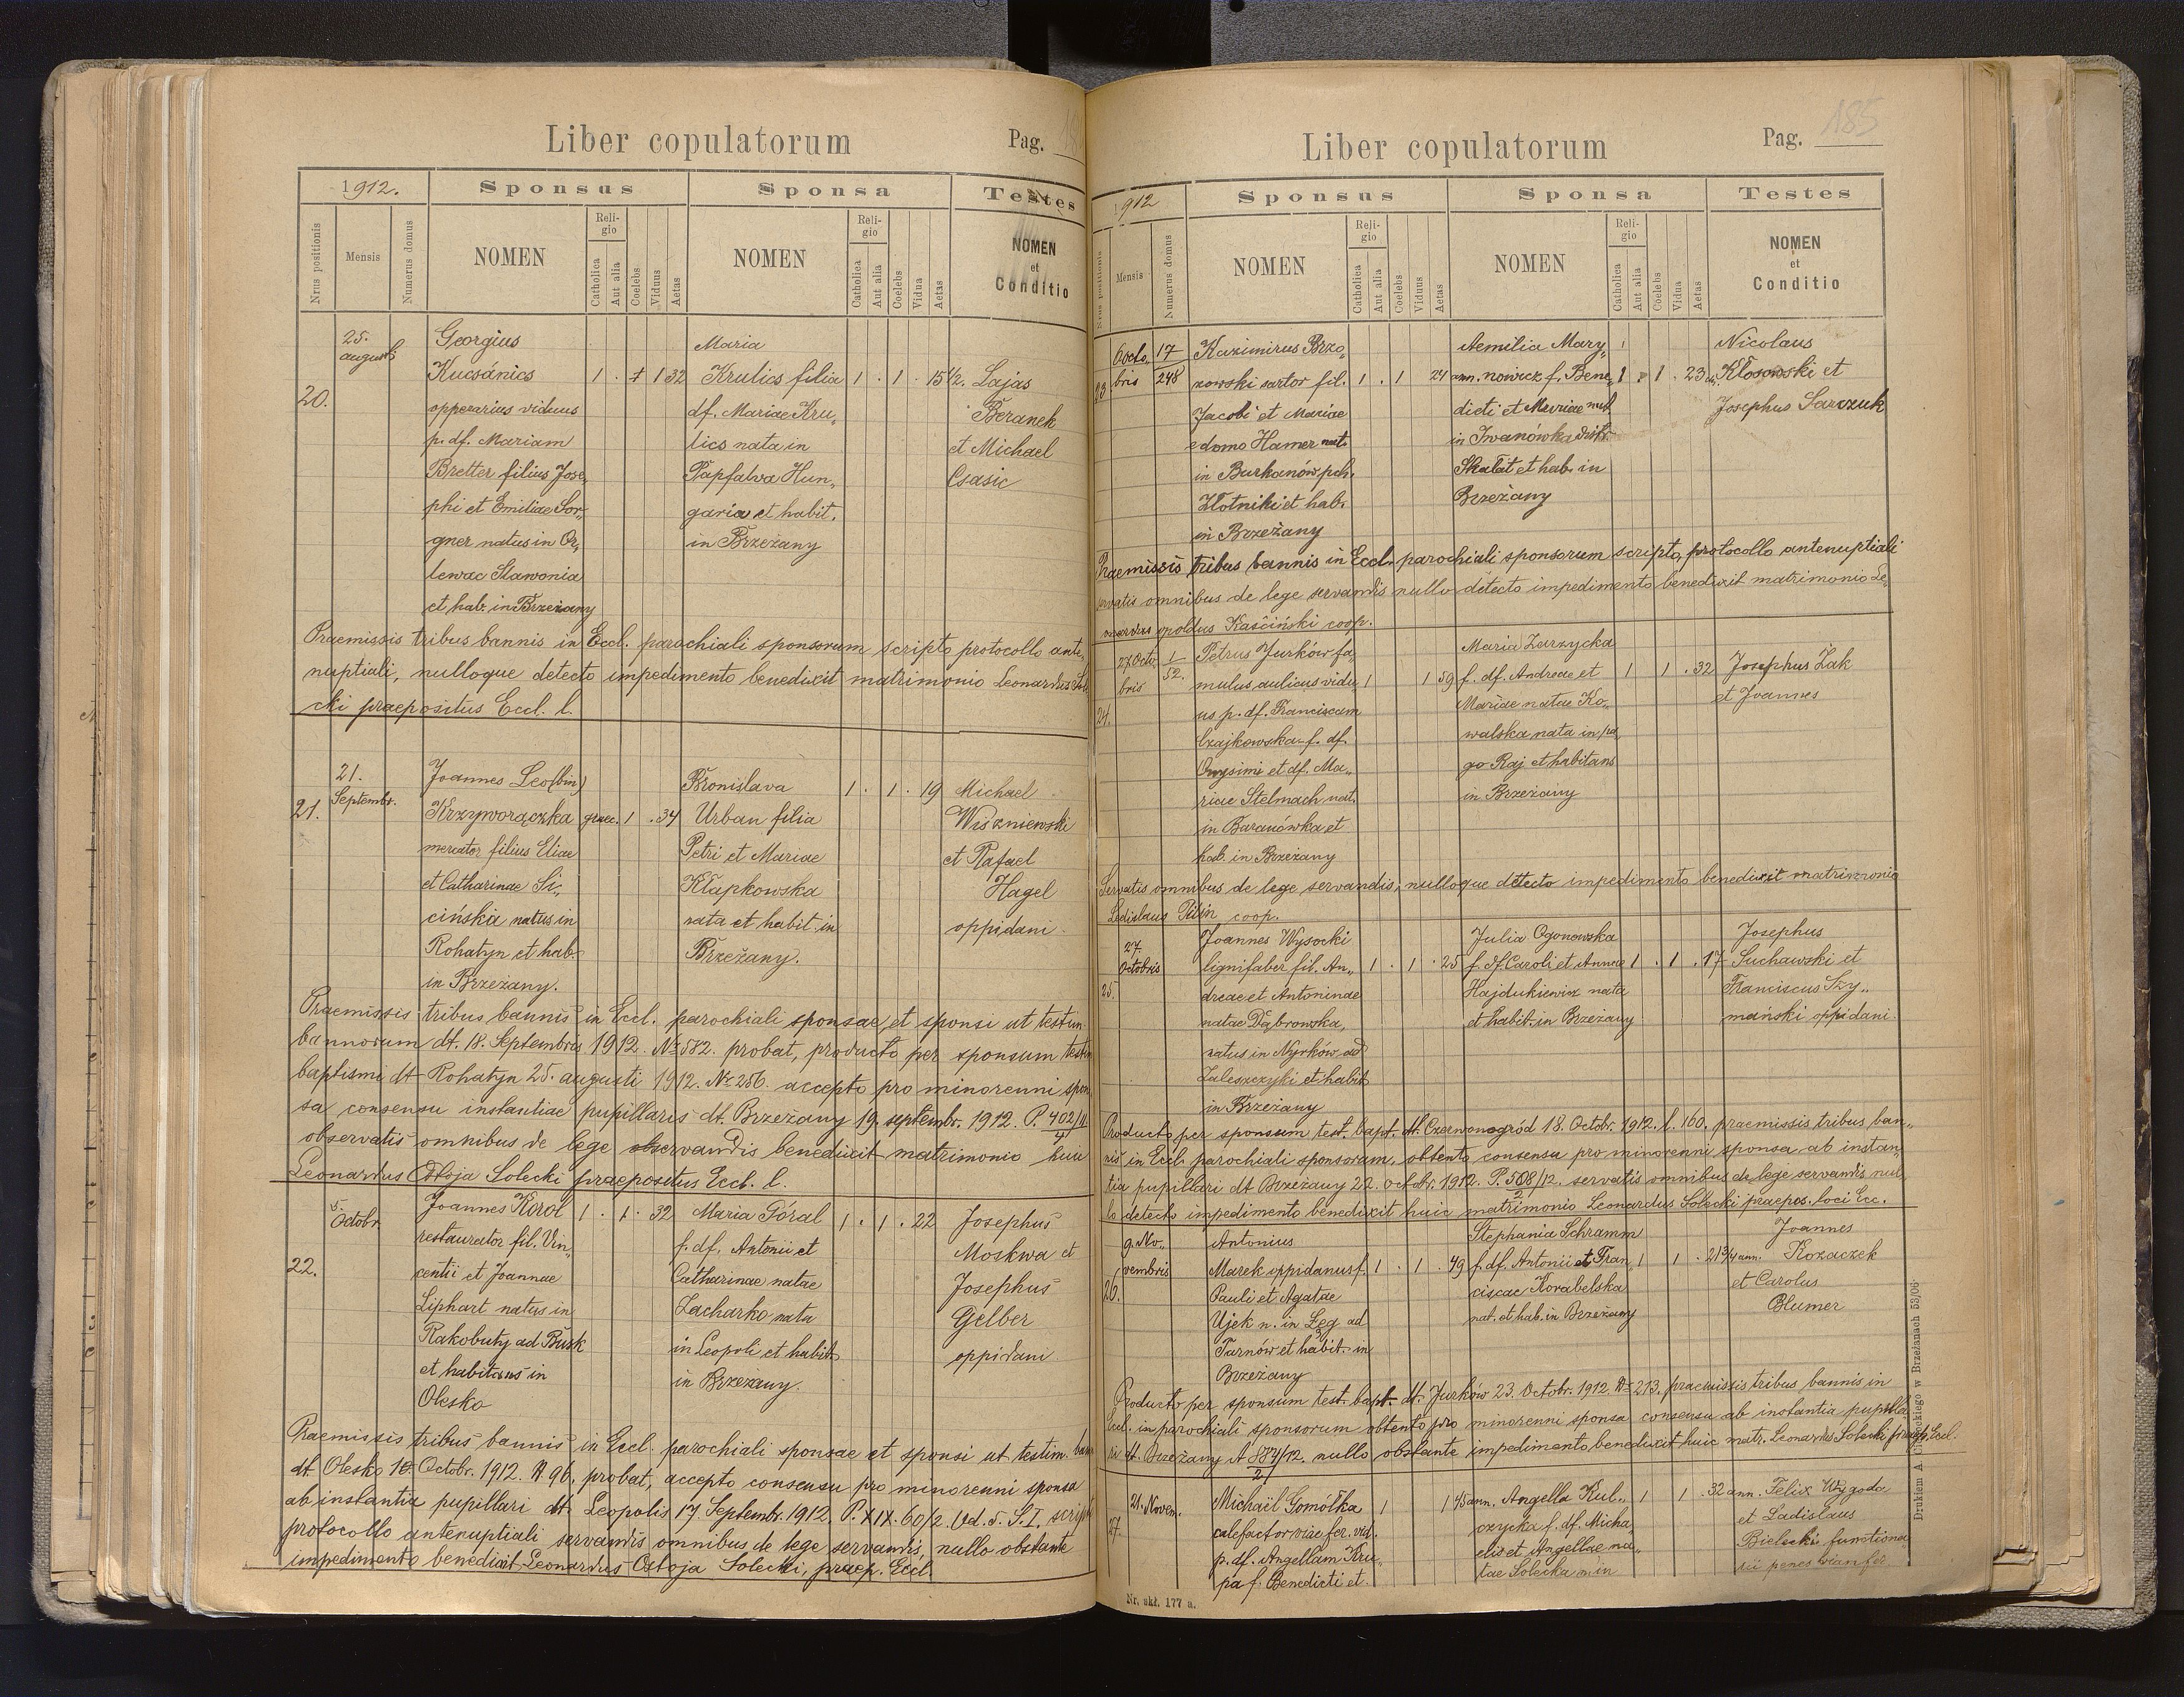 Liber copulatorum
Pag.
1912.
Sponsus
Sponsa
Testes
Nrus positionis
Mensis
Numerus domus
NOMEN
Religio
Catholica
Aut alia
Coelebs
Viduus
Aetas
NOMEN
Religio
Catholica
Aut alia
Coelebs
Vidua
Aetas
NOMEN
et
Conditio
20.
25.
augusti
Georgius
Kucsánics
opperarius viduus
p. df. Mariam
Bretter filius Jose„
phi et Emiliae Sor„
gner natus in Or„
lewac Slawonia
et hab. in Brzeżany
1 . 1 32
Maria
Krulics filia
df. Mariae Kru„
lics nata in
Papfalva Hun„
garia et habit.
in Brzeżany
1 . 1 . 15 1/2.
Lajas
Beranek
et Michael
Csasic
Praemissis tribus bannis in Eccl. parochiali sponsorum scripto protocollo ante„
nuptiali, nulloque detecto impedimento benedixit matrimonio Leonardus So„
cki praepositus Eccl. l.
21.
21.
Septembr.
Joannes Leo (bin)
Krzyworączka
mercator filius Eliae
et Catharinae Si„
cińska natus in
Rohatyn et hab.
in Brzeżany.
graec. 1 . 34
Bronislava
Urban filia
Petri et Mariae
Kłapkowska
nata et habit. in
Brzeżany.
1 . 1 . 19
Michael
Wiszniewski
et Rafael
Hagel
oppidani
Praemissis tribus bannis in Eccl. parochiali sponsae et sponsi ut testim
bannorum dt. 18. Septembris 1912. № 582. probat, producto per sponsum testim
baptismi dt Rohatyn 25. augusti 1912. № 256. accepto pro minorenni spon
sa consensu instantiae pupillaris dt. Brzeżany 19. septembr. 1912. P. 402/11
4
observatis omnibus de lege observandis benedixit matrimonio huic
Leonardus Ostoja Solecki praepositus Eccl. l.
22.
5.
Octobr.
Joannes Korol
restaurator fil. Vin„
centii et Joannae
Liphart natus in
Rakobuty ad Busk
et habitans in
Olesko
1 . 1 . 32
Maria Góral
f. df. Antonii et
Catharinae natae
Zacharko nata
in Leopoli et habit.
in Brzeżany.
1 . 1 . 22
Josephus
Moskwa et
Josephus
Gelber
oppidani
Praemissis tribus bannis in Eccl. parochiali sponsae et sponsi ut testim. bann
dt Olesko Octobr. 1912. № 96, probat, accepto consensu pro minorenni sponsa
ab instantia pupillari dt. Leopolis 17. Septembr. 1912. P. XIX. 60/2. Od. S. I, script
protocollo antenuptiali servandis omnibus de lege servandis, nullo obstante
impedimento benedixit Leonardus Ostoja Solecki, praep. Eccl.
Liber copulatorum
Pag. 185
1912
Sponsus
Sponsa
Testes
Nrus positionis
Mensis
Numerus domus
NOMEN
Religio
Catholica
Aut alia
Coelebs
Viduus
Aetas
NOMEN
Religio
Catholica
Aut alia
Coelebs
Vidua
Aetas
NOMEN
et
Conditio
23
6 octo„
bris
17
248
Kazimirus Brzo„
zowski sartor fil.
Jacobi et Mariae
e domo Hamer nat.
in Burkanów pch.
Złotniki et hab.
in Brzeżany
1 . 1 24 ann.
Aemilia Mary„
nowicz f. Bene„
dicti et Mariae
in Iwanówka distr.
Skałat et hab. in
Brzeżany
1 . 1 . 23
Nicolaus
Kłosowski et
Josephus Sarczuk
Praemissis tribus bannis in Eccl. parochiali sponsorum scripto, protocollo antenuptiali
servatis omnibus de lege servandis nullo detecto impedimento benedixit matrimonio Le„
opoldus Kaściński coop.
24.
27 Octo„
bris
1
52.
Petrus Jurków fa„
mulus aulicus vidu„
us p. df. Franciscam
Czajkowska f. df.
Onysimi et df. Ma„
riae Stelmach nat.
in Baranówka et
hab. in Brzeżany
1 1 59
Maria Zarzycka
f. df. Andreae et
Mariae natae Ko„
walska nata in pa„
go Raj et habitans
in Brzeżany
1 1 . 32
Josephus Żak
et Joannes
Servatis omnibus de lege servandis, nulloque detecto impedimento benedixit matrimonio
Ladislaus Pilin coop.
25.
27.
Octobris
Joannes Wysocki
lignifaber fil. An„
dreae et Antoninae
natae Dąbrowska,
natus in Nyrków ad
Zaleszczyki et habit.
in Brzeżany
1 . 1 . 25
Julia Ogonowska
f. df. Caroli et Annae
Hajdukiewicz nata
et habit. in Brzeżany
1 . 1 . 17
Josephus
Suchawski et
Franciscus Szy„
mański oppidani.
Producto per sponsum test. bapt. dt. Czerwonogród 18. Octobr. 1912. l. 160. praemissis tribus ban„
nis in Eccl. parochiali sponsorum. obtento consensu pro minorenni sponsa ab instan„
tia pupillari dt Brzeżany 22. octobr. 1912. P. 508/12. servatis omnibus de lege servandis nul
2
lo detecto impedimento benedixit huic matrimonio Leonardus Solecki praepos. loci Ecc.
26.
9. No„
vembris
Antonius
Marek oppidanus f.
Pauli et Agatae
Ujek n. in Łęg ad
Tarnów et habit. in
Brzeżany
1 . 1 . 49
Stephania Schramm
f. df. Antonii et Fran„
ciscae Korabelska
nat. et hab. in Brzeżany
1 1 . 21 3/4 ann.
Joannes
Kozaczek
et Carolus
Blumer
Producto per sponsum test. bapt. dt. Jurków 23. Octobr. 1912 № 213. praemissis tribus bannis in
Eccl. in parochiali sponsorum obtento pro minorenni sponsa consensu ab instantia pupilla
ri dt. Brzeżany A 887/12. nullo obstante impedimento benedixit huic matr. Leonardus Solecki praep. Eccl.
2
27.
21. Novem.
Michaël Gomółka
calefactor viae fer. vid.
p. df. Angellam Kru„
pa f. Benedicti et
1 1 45 ann.
Angella Kul„
czycka f. df. Micha„
elis et Angellae na„
tae Solecka n. in
1 1 . 32 ann.
Felix Wygoda
et Ladislaus
Bielecki functiona
rii penes viam fer.
Nr. skł. 177 a.
w Brzeżanach 53/06